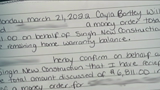 Monday March 21, 2022 Cayla Bartley Will
a money order
1.00 on behalf of Singh New Construction
remaining home warranty balance.
hereby confirm on behalf
Singh New Construction that I have
Total amount discussed of $6,311.00
a money order from